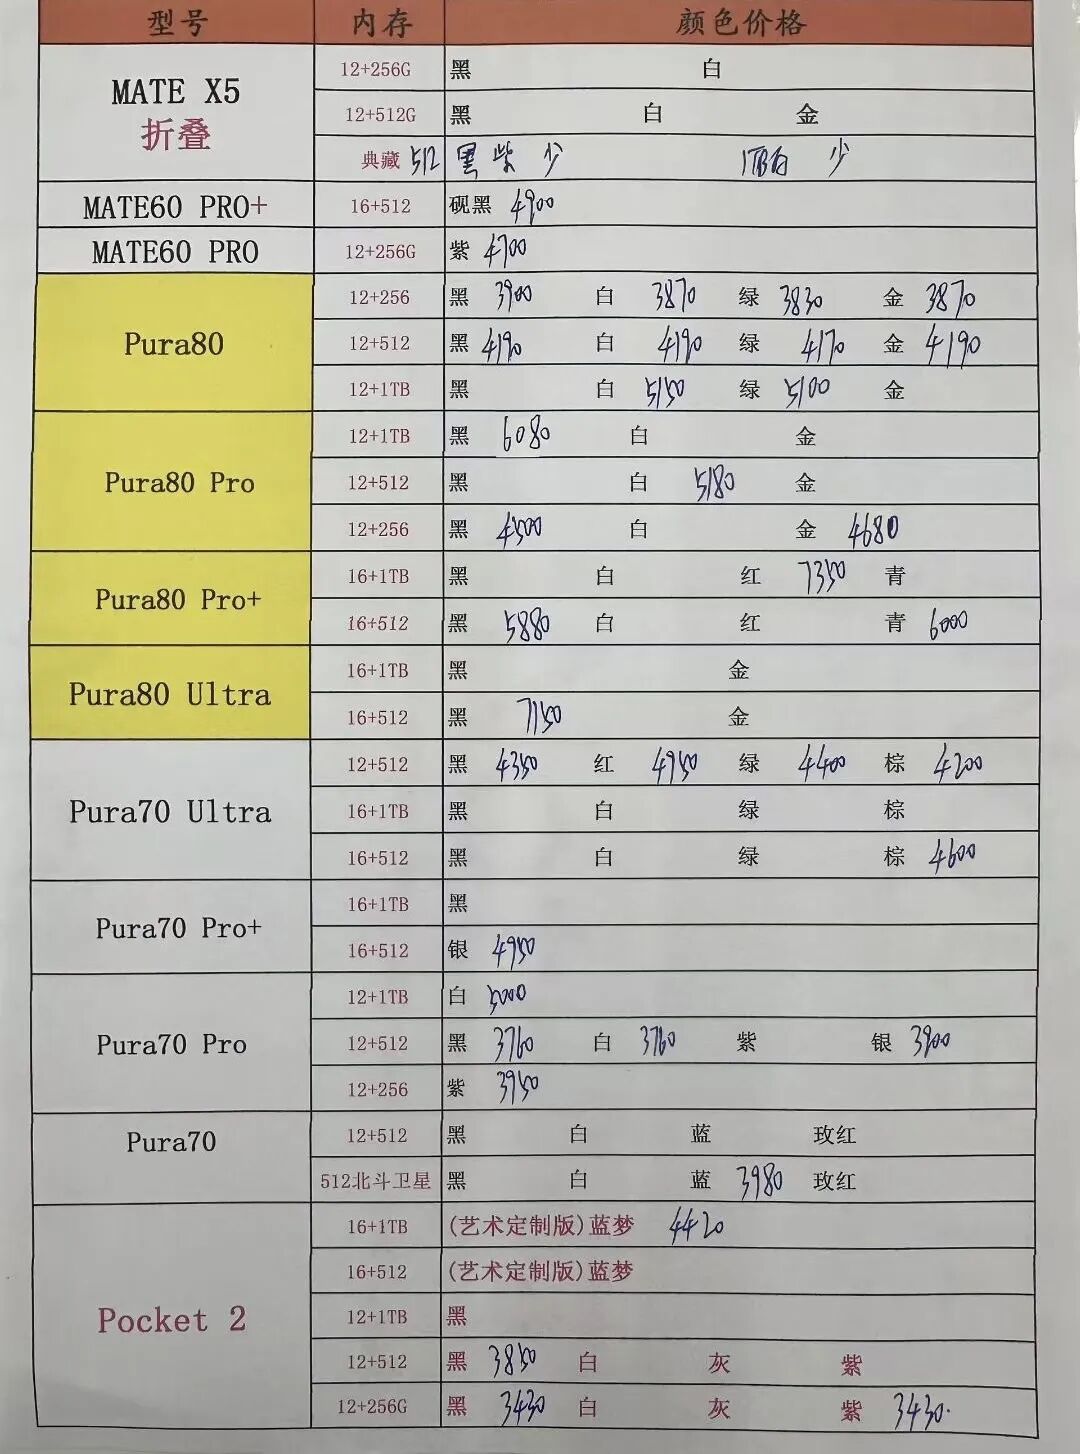 型号 内存 颜色价格
MATE X5
折叠
12+256G 黑 白
12+512G 黑 白 金
典藏 512 黑 紫 少 1TB白 少
MATE60 PRO+ 16+512 砚黑 4900
MATE60 PRO 12+256G 紫 4700
Pura80
12+256 黑 3900 白 3870 绿 3830 金 3870
12+512 黑 4190 白 4190 绿 4170 金 4190
12+1TB 黑 白 5150 绿 5100 金
Pura80 Pro
12+1TB 黑 6080 白 金
12+512 黑 白 5180 金
12+256 黑 4500 白 金 4680
Pura80 Pro+
16+1TB 黑 白 红 7350 青
16+512 黑 5880 白 红 青 6000
Pura80 Ultra
16+1TB 黑 金
16+512 黑 7150 金
Pura70 Ultra
12+512 黑 4350 红 4950 绿 4400 棕 4200
16+1TB 黑 白 绿 棕
16+512 黑 白 绿 棕 4600
Pura70 Pro+
16+1TB 黑
16+512 银 4950
Pura70 Pro
12+1TB 白 5000
12+512 黑 3760 白 3760 紫 银 3900
12+256 紫 3950
Pura70
12+512 黑 白 蓝 玫红
512北斗卫星 黑 白 蓝 3980 玫红
Pocket 2
16+1TB (艺术定制版)蓝梦 4420
16+512 (艺术定制版)蓝梦
12+1TB 黑
12+512 黑 3850 白 灰 紫
12+256G 黑 3430 白 灰 紫 3430.